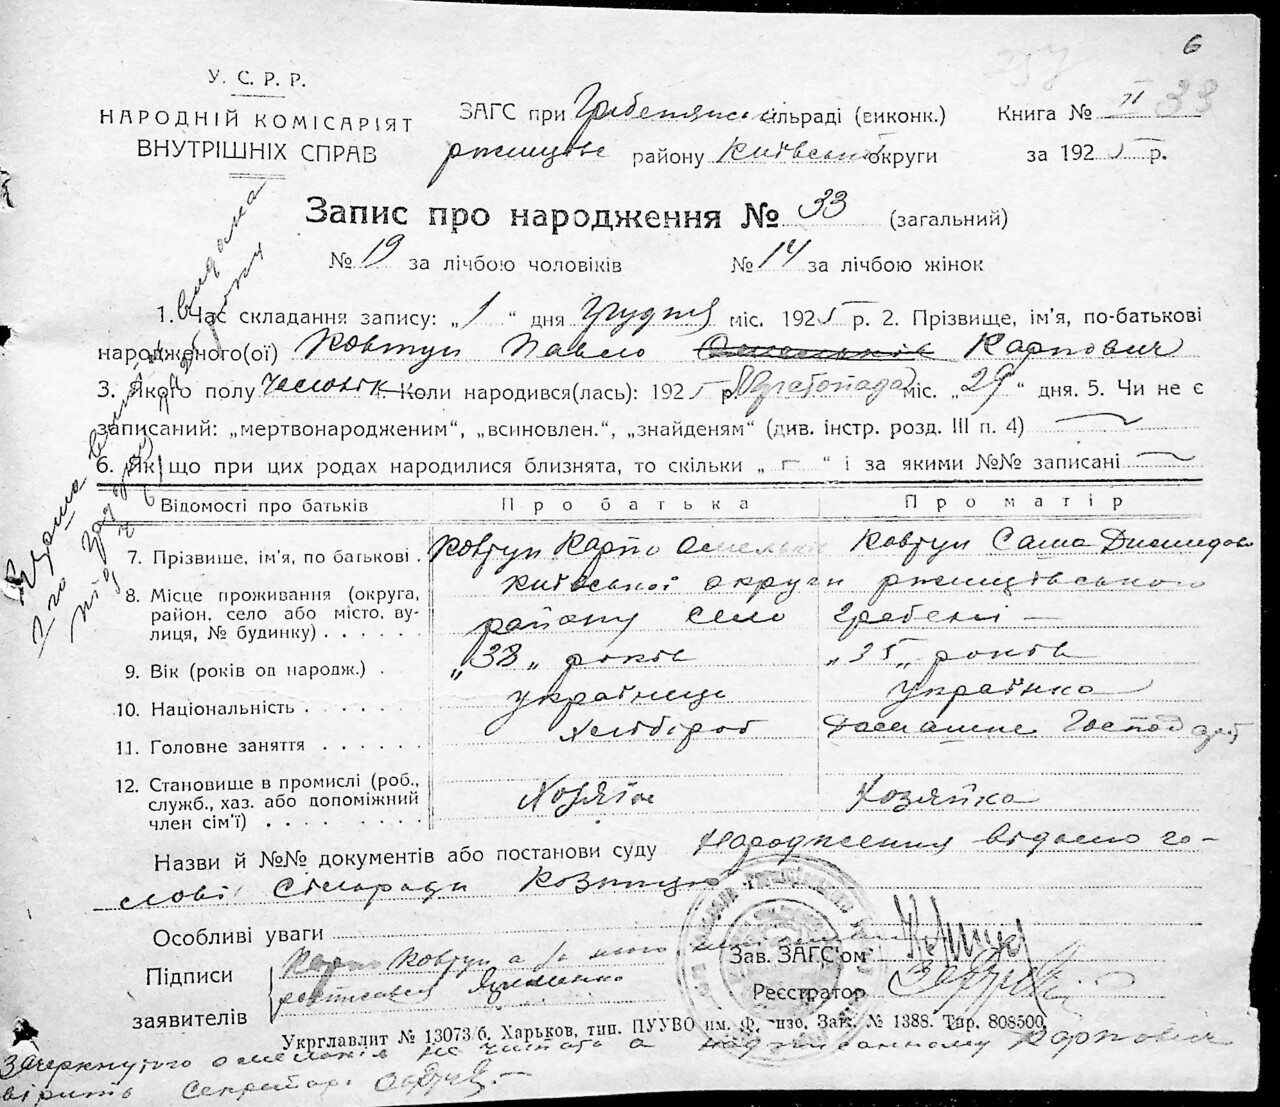 6
У. С. Р. Р.
НАРОДНІЙ КОМІСАРІЯТ
ВНУТРІШНІХ СПРАВ
ЗАГС при сільраді (виконк.)
району Київської округи
Книга № II 33
за 1925 р.
Запис про народження № 33 (загальний)
№ 19 за лічбою чоловіків № 14 за лічбою жінок
1. Час складання запису: „1“ дня Грудня міс. 1925 р. 2. Прізвище, ім’я, по-батькові
народженого(ої) Ковтун Павло Омельків Карпович
3. Якого полу Чоловік. Коли народився(лась): 1925 р. Листопада міс. „29“ дня. 5. Чи не є
записаний: „мертвонародженим“, „всиновлен.“, „знайденям“ (див. інстр. розд. III п. 4)
6. Якщо при цих родах народилися близнята, то скільки „ “ і за якими №№ записані
Відомості про батьків Про батька Про матір
7. Прізвище, ім’я, по батькові . Ковтун Карпо Ковтун
8. Місце проживання (округа,
район, село або місто, ву-
лиця, № будинку) . . . . . .
Київської округи ржищівського
району село Гребені
9. Вік (років од народж.) . „38„ років „35„ років
10. Національність . . . . . . українець Українка
11. Головне заняття . . . . . . Хлібороб
12. Становище в промислі (роб.,
служб., хаз. або допоміжний
член сім’ї) . . . . . . . . .
Хозяїн Хозяйка
Назви й №№ документів або постанови суду Народження відомо го-
лові Сільради
Особливі уваги
Підписи
заявителів
Карпо Ковтун а за нього
Зав. ЗАГС’ом
Реєстратор
Укрглавлит № 13073/б. Харьков, тип. ПУУВО им. Зак. № 1388. Тир. 808500.
Зачеркнутого не читать а надписанному Карпович
вірить Секретарь